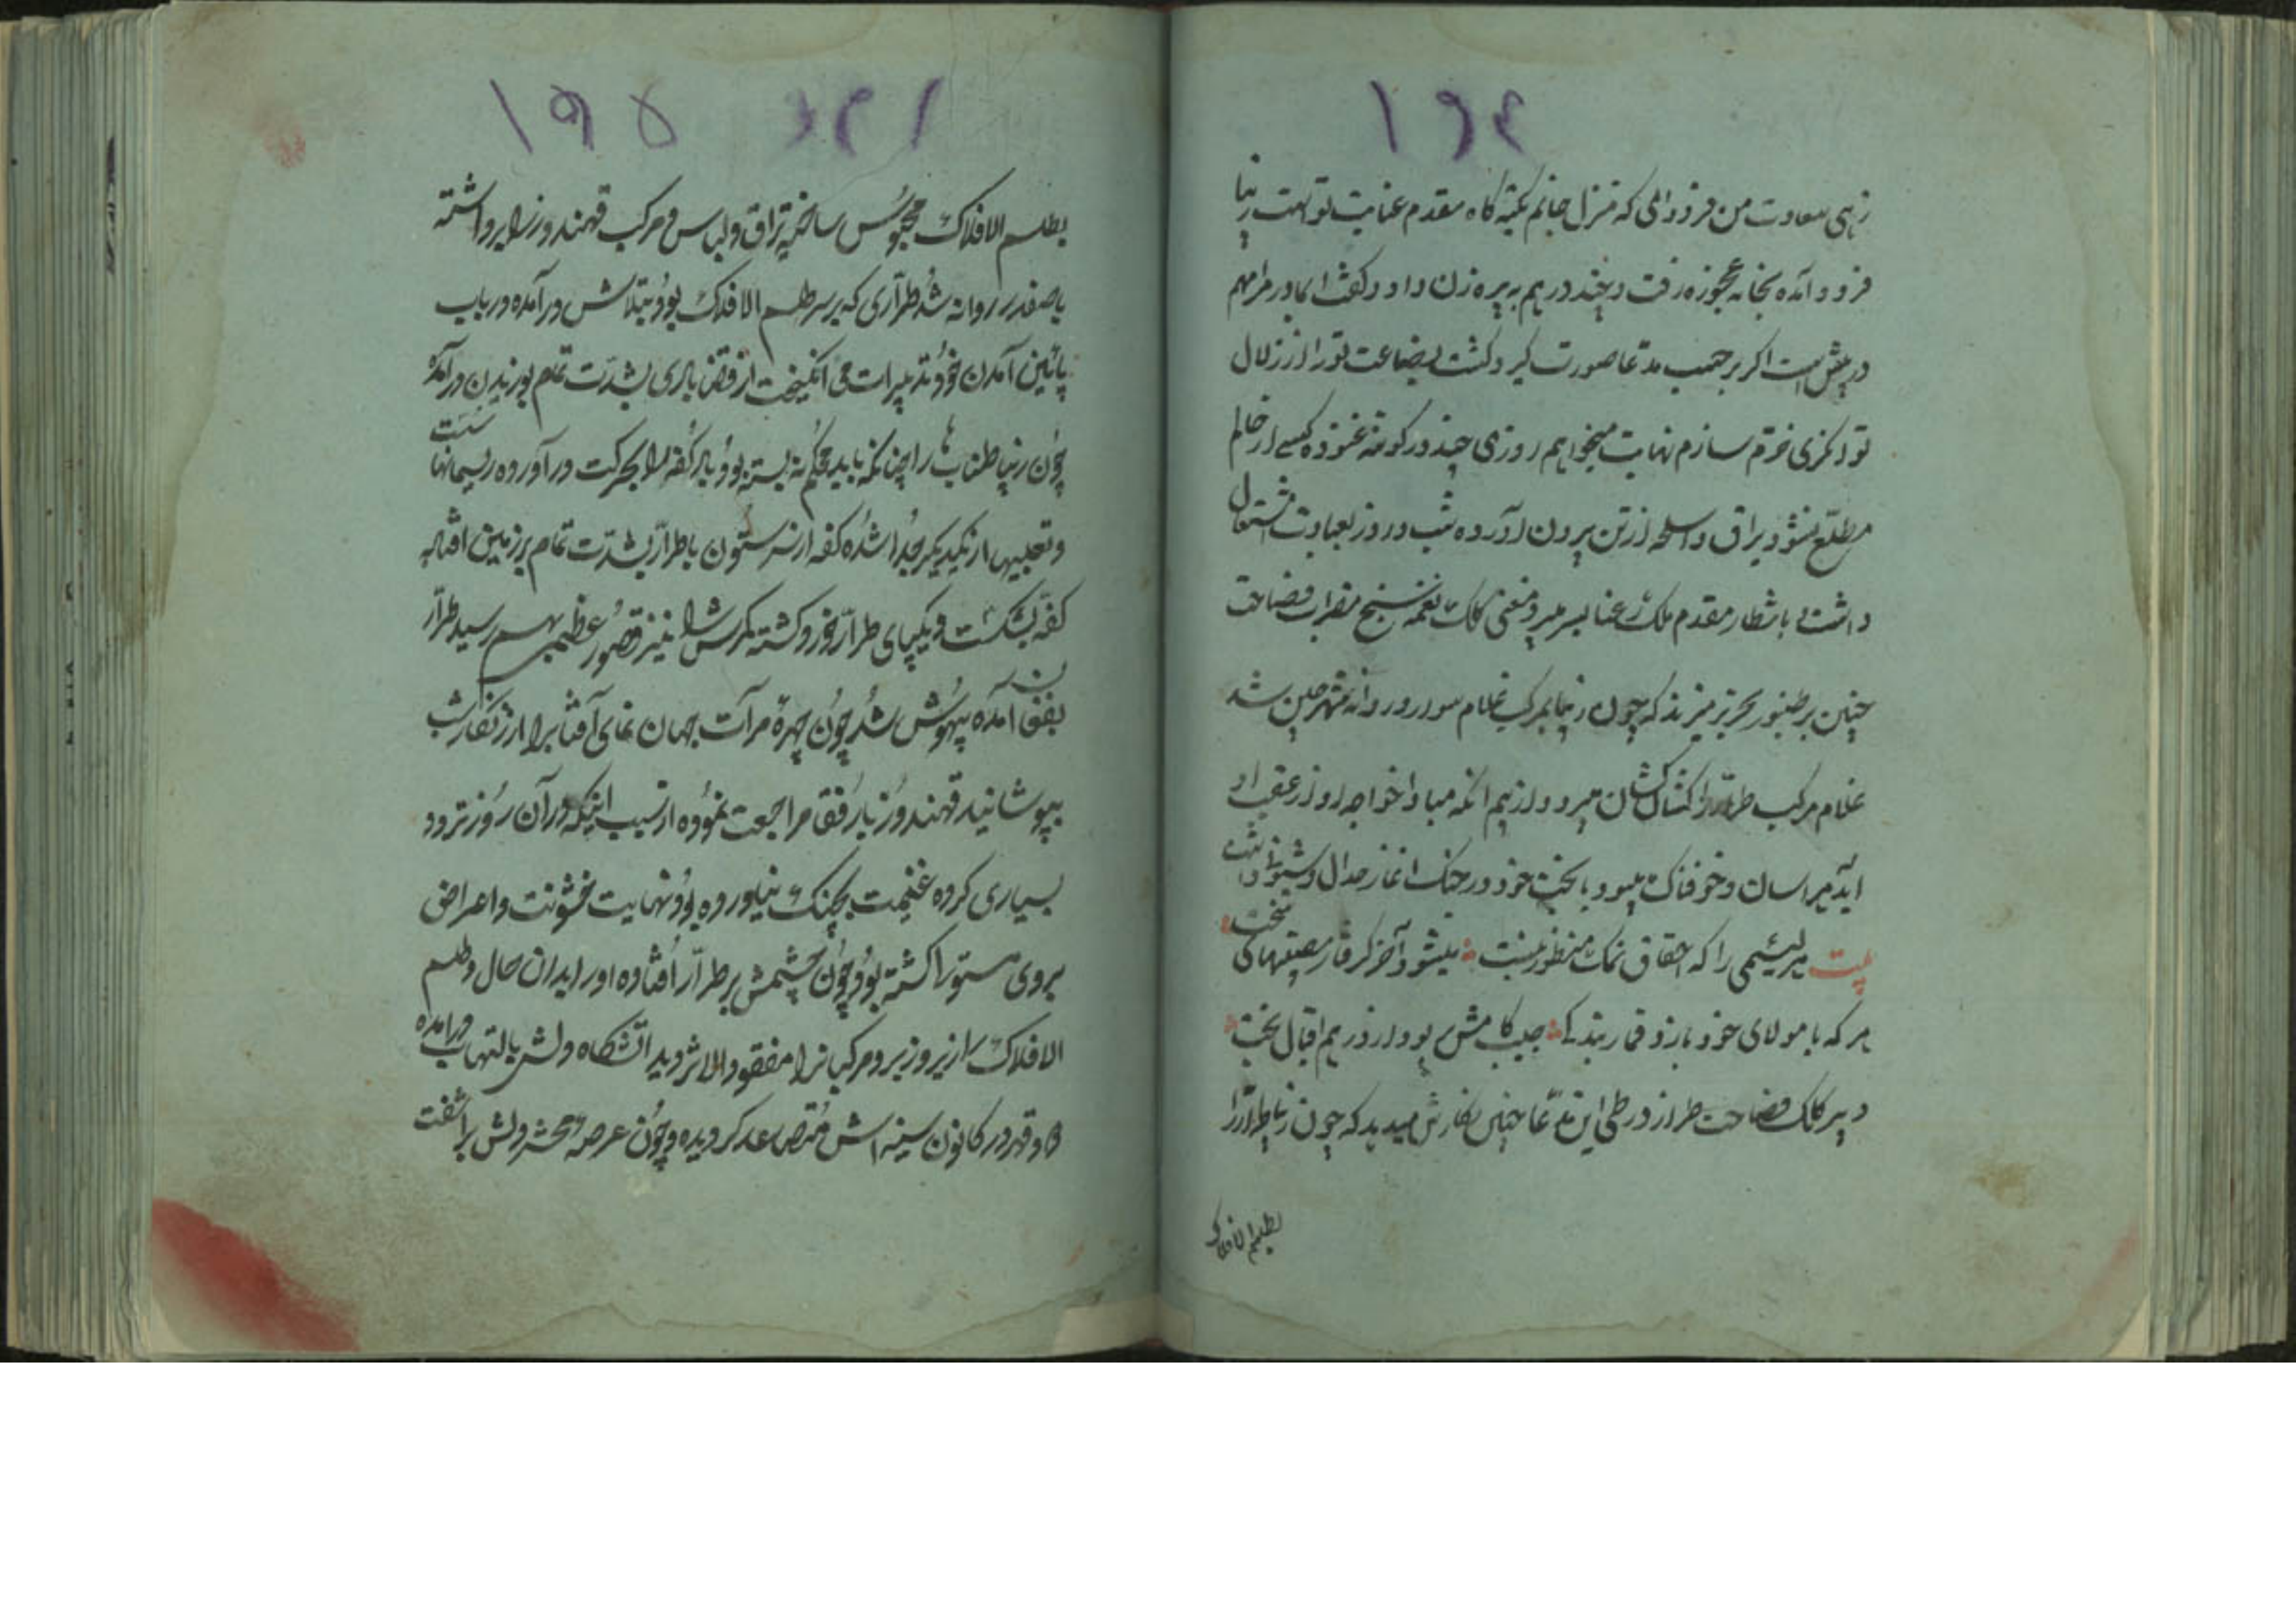 ۱۹٤
زهی سعادت من فرود الی که منزل جانم تکیه گاه مقدم عنایت تو است زیبا
فرود آمده بخانه عجوزه رفت و چند درهم به پیره زن داد و گفت ای مادر مرا مهم
در پیش است اگر بر حسب مدعا صورت گیرد کشت بضاعت تو را از زلال
توانگری خرم سازم نهایت میخواهم روزی چند در گوشه غنوده کسی از حالم
مطلع نشود یراق و اسلحه از تن بیرون آورده شب و روز بعبادت اشتغال
داشت بانتظار مقدم ملک عنا بسر میبرد مغنی کلک نغمه سنج مضراب فصاحت
چنین بر طنبور تحریر میزند که چون زیبا بمرکب غلام سوار و روانه شهر چین شد
غلام مرکب طرار را کشان کشان میبرد و از بیم انکه مبادا خواجه او از عقب او
آید هراسان و خوفناک میبود با بخت خود در جنگ اغاز جدال و شیون داشت
بیت هر لئیمی را که احقاق نمک منظور نیست میشود آخر گرفتار مصیبتهای سخت
هر که با مولای خود بازد قمار بندگی جیب کامش بود از در هم اقبال بخت
دبیر کلک فصاحت طراز در طی این مدعا چنین نگارش میدهد که چون زیبا طرار را
بطلسم الافلاک
۱۹۵
بطلسم الافلاک محبوس ساخته یراق و لباس و مرکب قهندوز را برداشته
با صفدر روانه شد طراری که بر سر طلسم الافلاک بود بتلاش در آمده در باب
پائین آمدن خود تدبیرات می انگیخت از قضا بادی بشدت تمام بوزیدن در آمده
چون زیبا طنابها را چنانکه باید محکم نه بسته بود باد کفه را بحرکت در آورده ریسمانها سست
و تعبیها از یکدیگر جدا شده کفه از سر ستون با طرار بشدت تمام بر زمین افتاده
کفه بشکست و یکپای طرار خورد گشته سرش را نیز قصور عظیم بهم رسید طرار
بفغان آمده بیهوش شد چون چهره مرآت جهان نمای آفتاب را از زنگار شب
بپوشانید قهندوز با رفقا مراجعت نموده از سبب اینکه در آن روز تردد
بسیاری کرده غنیمت بچنگ نیاورده بود نهایت خشونت و اعراض
بروی مستورا گشته بود چون چشمش بر طرار افتاده او را بدان حال و طلسم
الافلاک را زیر و زبر و مرکبانرا مفقود الاثر دید اتشکاه دلش بالتهاب درآمده
دود قهر در کانون سینه اش متصاعد گردیده و چون عرصه محشر دلش برآشفت